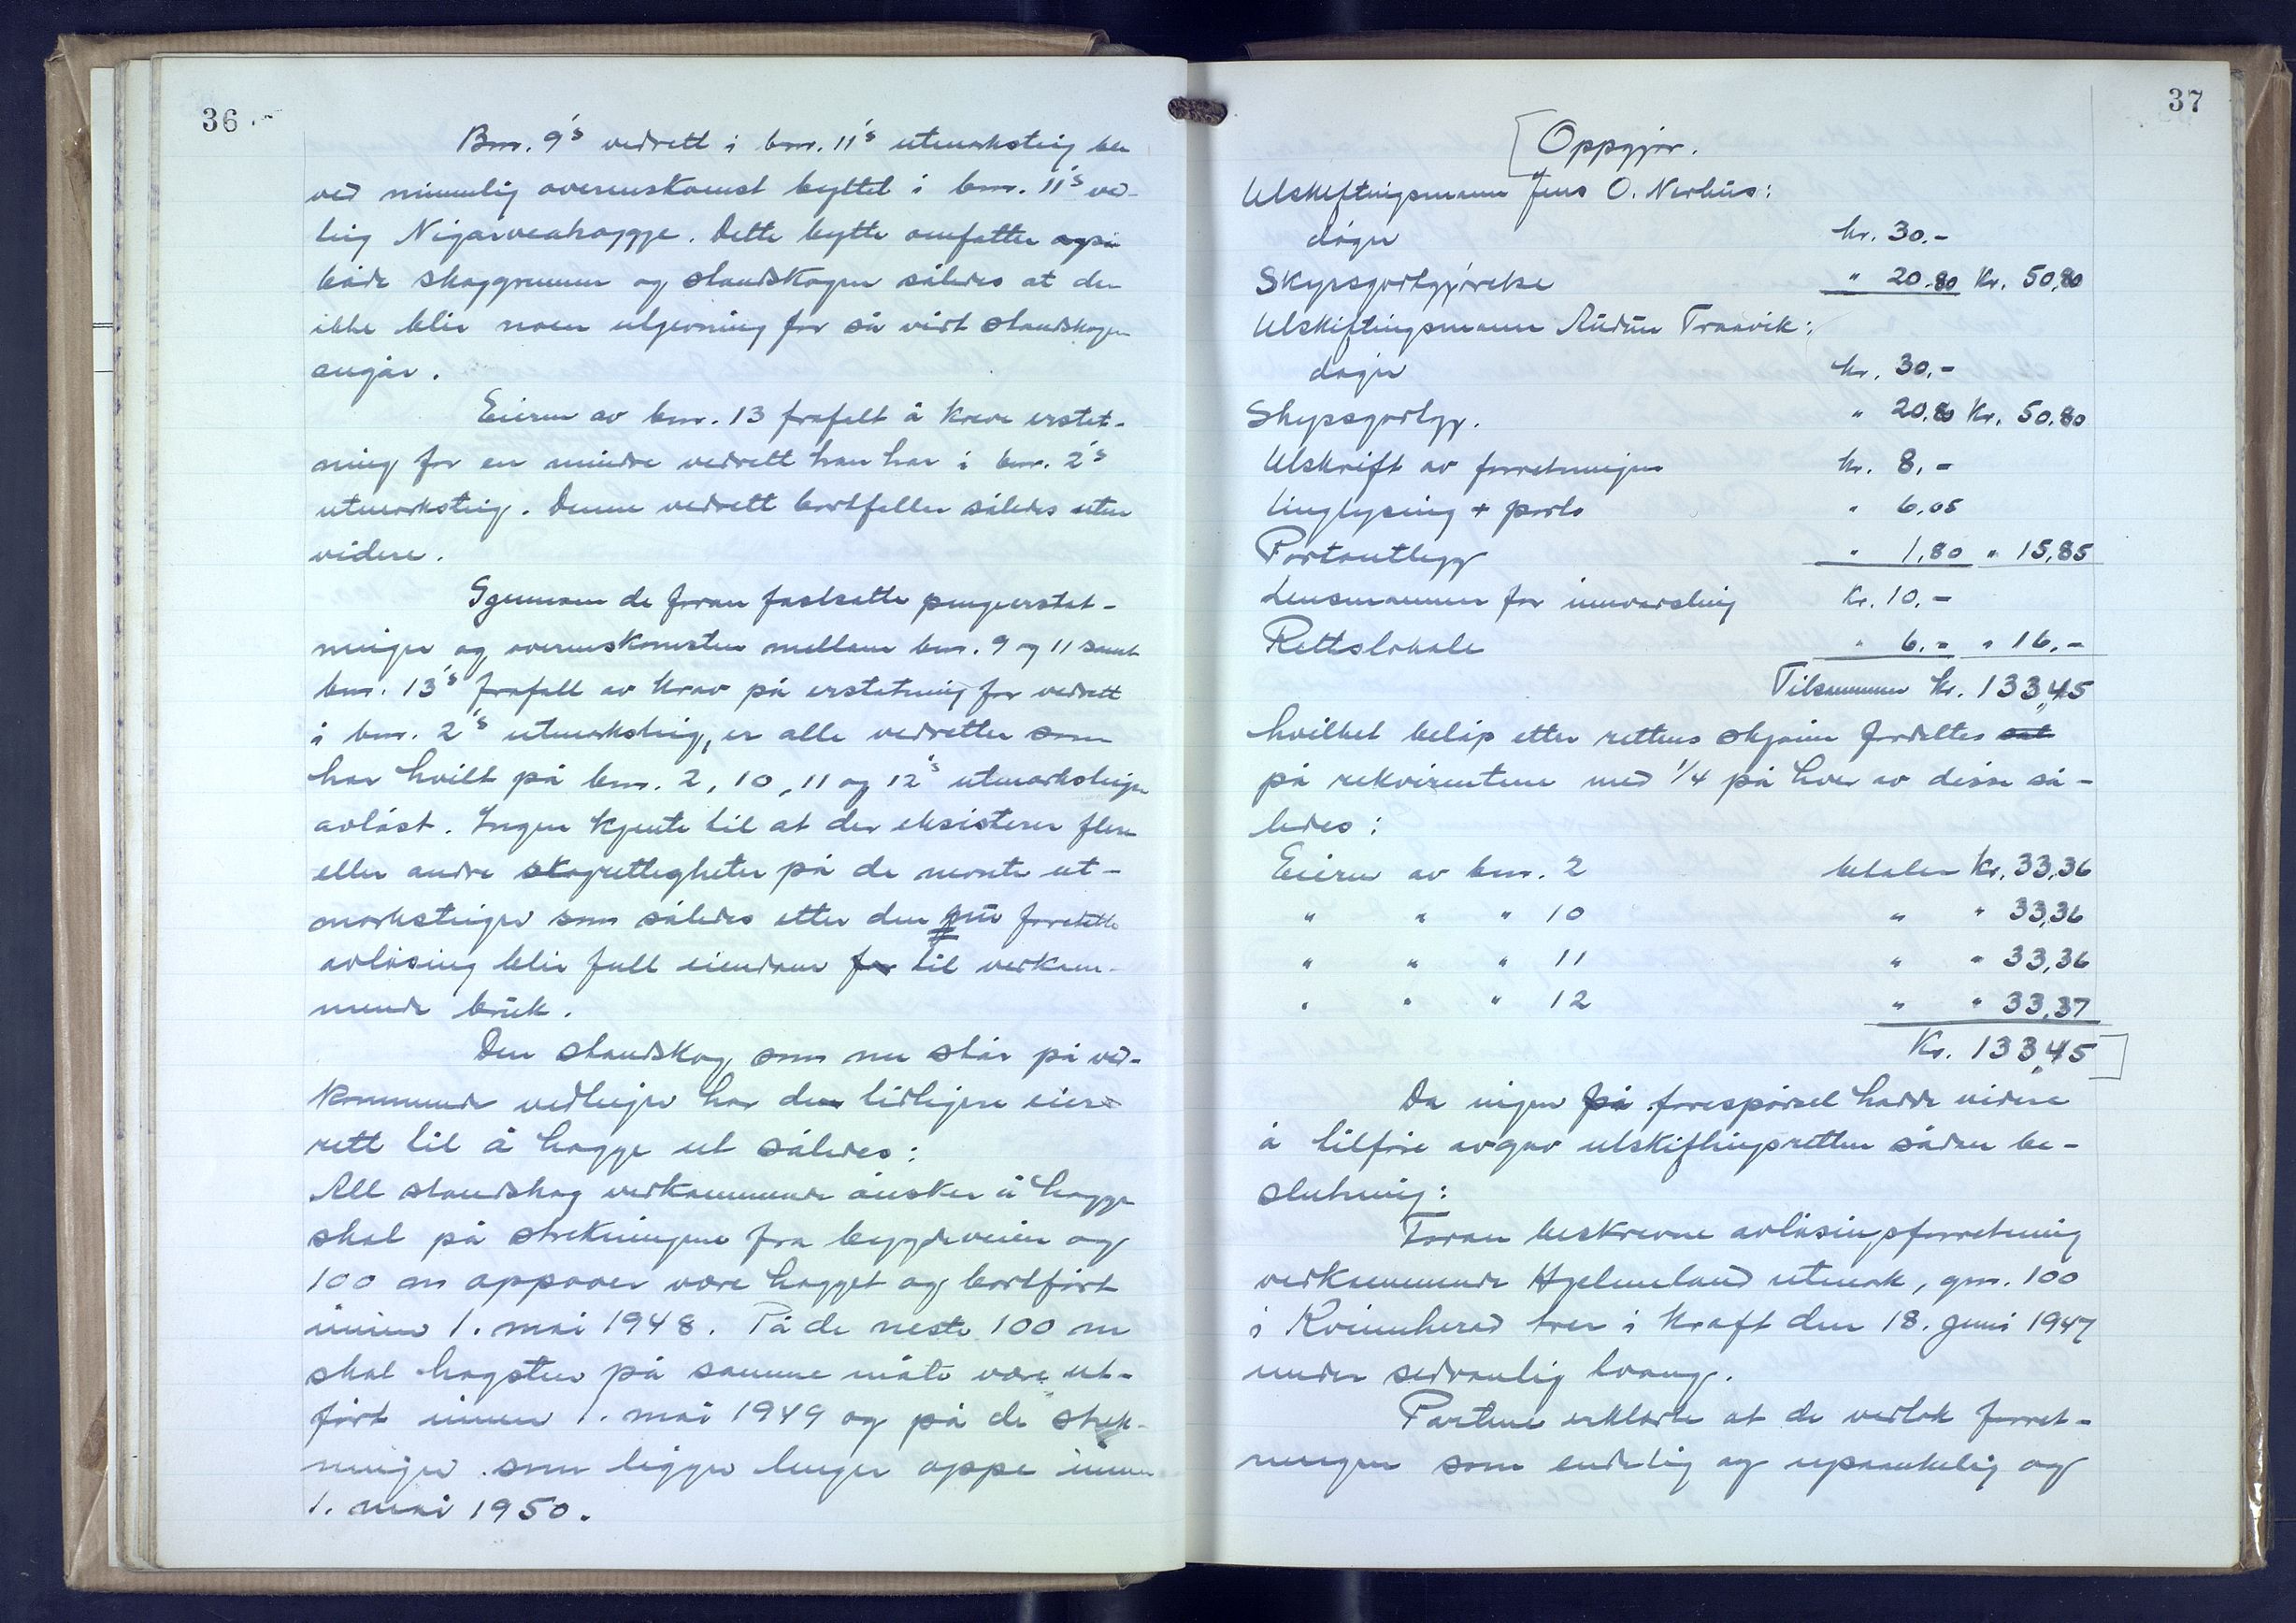 36
Bnr. 9's vedrett i bnr. 11's utmarksteig ble
ved minnelig overenskomst byttet i bnr. 11's ved-
teig Nigarveahagge. Dette bytte omfatter også
både skoggrunnen og standskogen således at der
ikke blir noen utjevning for så vidt standskogen
angår.
Eieren av bnr. 13 frafalt å kreve erstat-
ning for en mindre vedrett han har i bnr. 2's
utmarksteig. Denne vedrett bortfaller således uten
videre.
Igjennom de foran fastsatte pengeerstat-
ninger og overenskomsten mellom bnr. 9 og 11 samt
bnr. 13's frafall av krav på erstatning for vedrett
i bnr. 2's utmarksteig, er alle vedretter som
har hvilt på bnr. 2, 10, 11 og 12's utmarksteiger
avløst. Ingen kjente til at der eksisterer flere
eller andre skogrettigheter på de nevnte ut-
marksteiger som således etter den nu foretatte
avløsing blir full eiendom for til vedkom-
mende bruk.
Den standskog som nu står på ved-
kommende vedteiger har den tidligere eier
rett til å hogge ut således:
All standskog vedkommende ønsker å hogge
skal på strekningene fra bygdeveien og
100 m oppover være hogget og bortført
innen 1. mai 1948. På de neste 100 m
skal hogsten på samme måte være ut-
ført innen 1. mai 1949 og på de strek-
ninger som ligger lenger oppe innen
1. mai 1950.
37
Oppgjør.
Utskiftingsmann Jens O. Nerhus:
dager kr. 30.-
Skyssgodtgjørelse " 20.80 Kr. 50,80
Utskiftingsmann Audun Traavik:
dager kr. 30.-
Skyssgodtgj. " 20.80 Kr. 50.80
Utskrift av forretningen kr. 8,-
Tinglysing + porto " 6,05
Portoutlegg " 1,80 " 15,85
Lensmannen for innvarsling Kr. 10.-
Rettslokale " 6.- " 16.-
Tilsammen kr. 133,45
hvilket beløp etter rettens skjønn fordeltes
på rekvirentene med 1/4 på hver av disse så-
ledes:
Eieren av bnr. 2 betaler Kr. 33,36
" " " 10 " " 33,36
" " " 11 " " 33,36
" " " 12 " " 33,37
Kr. 133,45
Da ingen på forespørsel hadde videre
å tilføie avgav utskiftingsretten sådan be-
slutning:
Foran beskrevne avløsingsforretning
vedkommende Hjelmeland utmark, gnr. 100
i Kvinnherad trer i kraft den 18. juni 1947
under sedvanlig tvang.
Partene erklærte at de vedtok forret-
ningen som endelig og upåankelig og